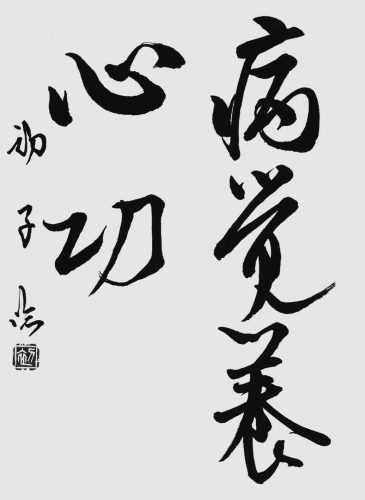 病覚養
心功
初子